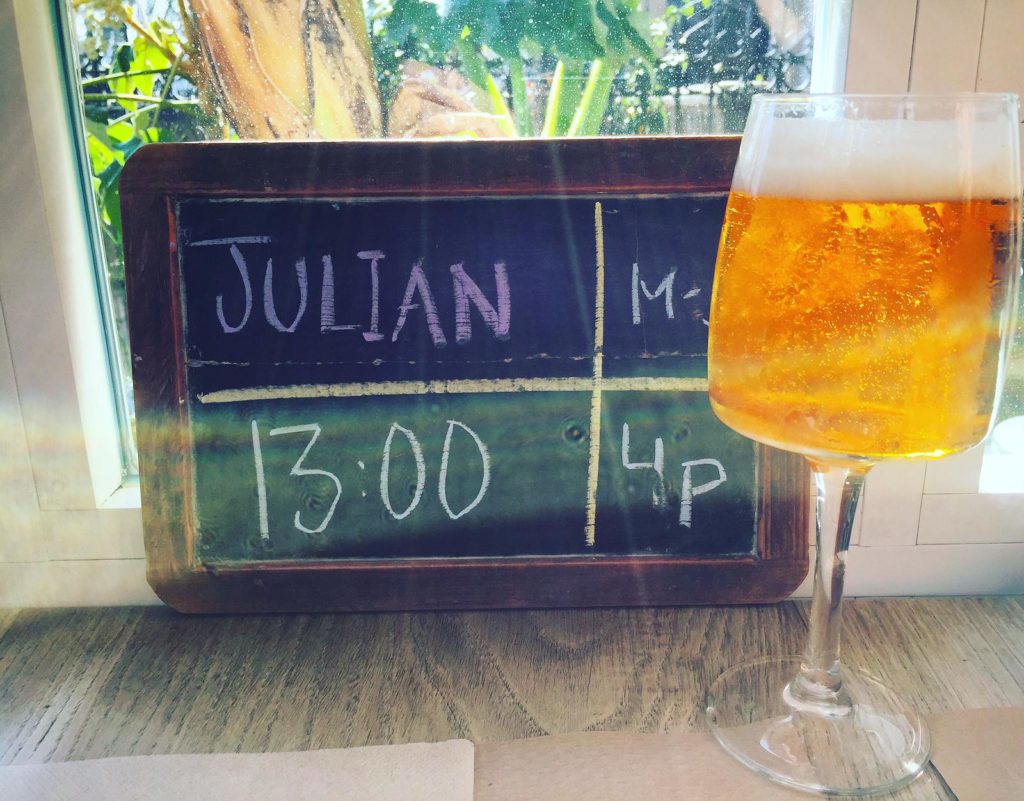 JULIAN
13:00
4P